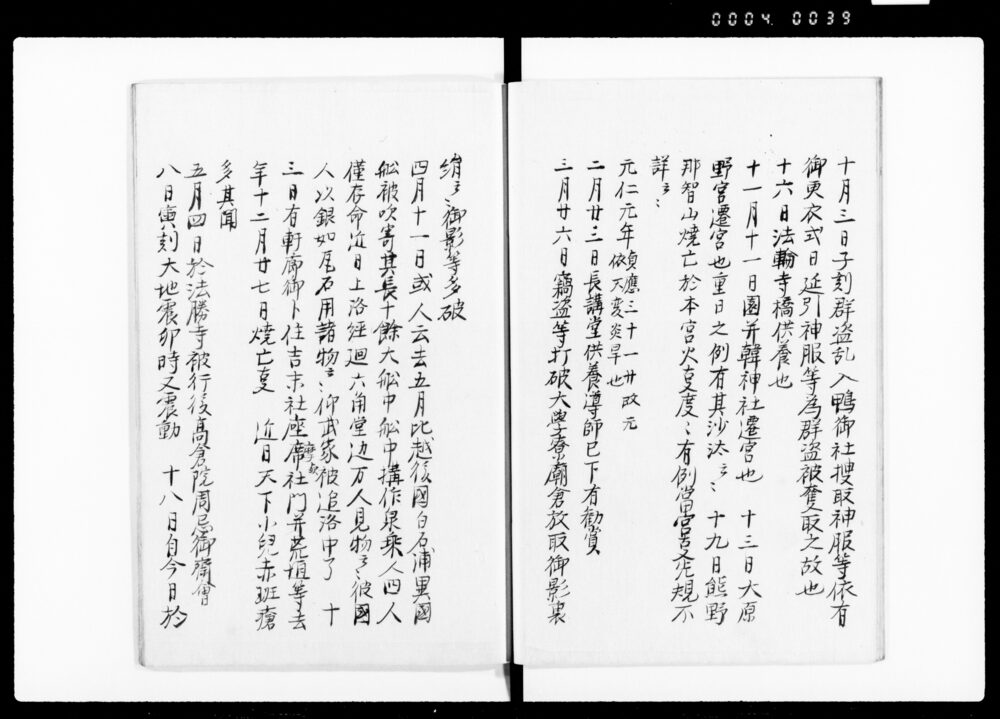 0004 0039
十月三日子刻群盗乱入鴨御社捜取神服等依有
御更衣式日延引神服等為群盗被奪取之故也
十六日法輪寺橋供養也
十一月十一日園并韓神社遷宮也　十三日大原
野宮遷宮也重日之例有其沙汰云々　十九日熊野
那智山焼亡於本宮火度々有例当宮又先規不
詳云々
元仁元年貞應三十一廿改元依天変炎旱也
二月廿三日長講堂供養導師已下有勧賞
三月廿六日竊盗等打破大學寮廟倉放取御影裏
絹云々御影等多破
四月十一日或人云去五月比越後國白石浦異國
舩被吹寄其長十餘大舩中舩中構作泉乗人四人
僅存命近日上洛経廻六角堂辺万人見物云々彼國
人以銀如瓦石用諸物云々仰武家被追洛中了　十
三日有軒廊御卜住吉末社座摩社門并荒垣等去
年十二月廿七日焼亡事　近日天下小兒赤班瘡
多其聞
五月四日於法勝寺被行後高倉院周忌御齋會
八日寅刻大地震卯時又震動　十八日自今日於